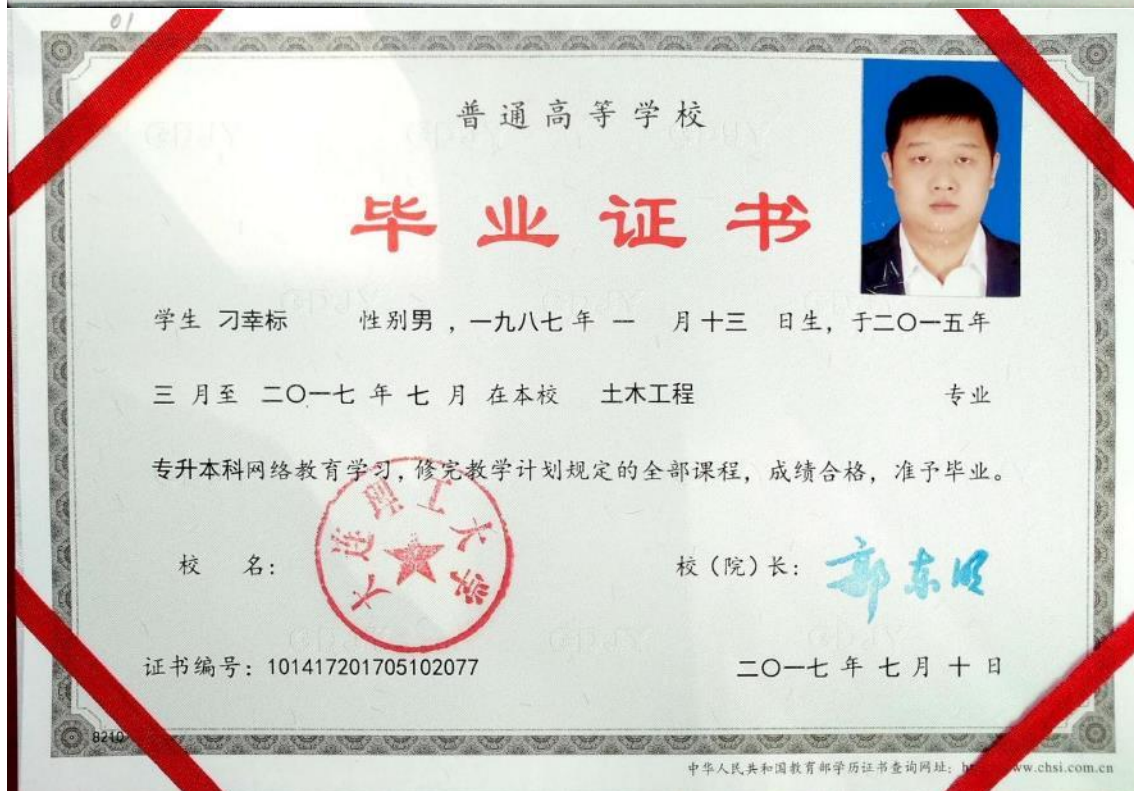 01
普通高等学校
毕业证书
学生 刁幸标 性别男，一九八七年 一 月十三 日生，于二〇一五年
三 月至 二〇一七 年 七 月 在本校 土木工程 专业
专升本科网络教育学习，修完教学计划规定的全部课程，成绩合格，准予毕业。
校 名：
大连理工大学
校（院）长：
郭东明
证书编号：101417201705102077
二〇一七 年 七 月 十 日
8210
中华人民共和国教育部学历证书查询网址： www.chsi.com.cn